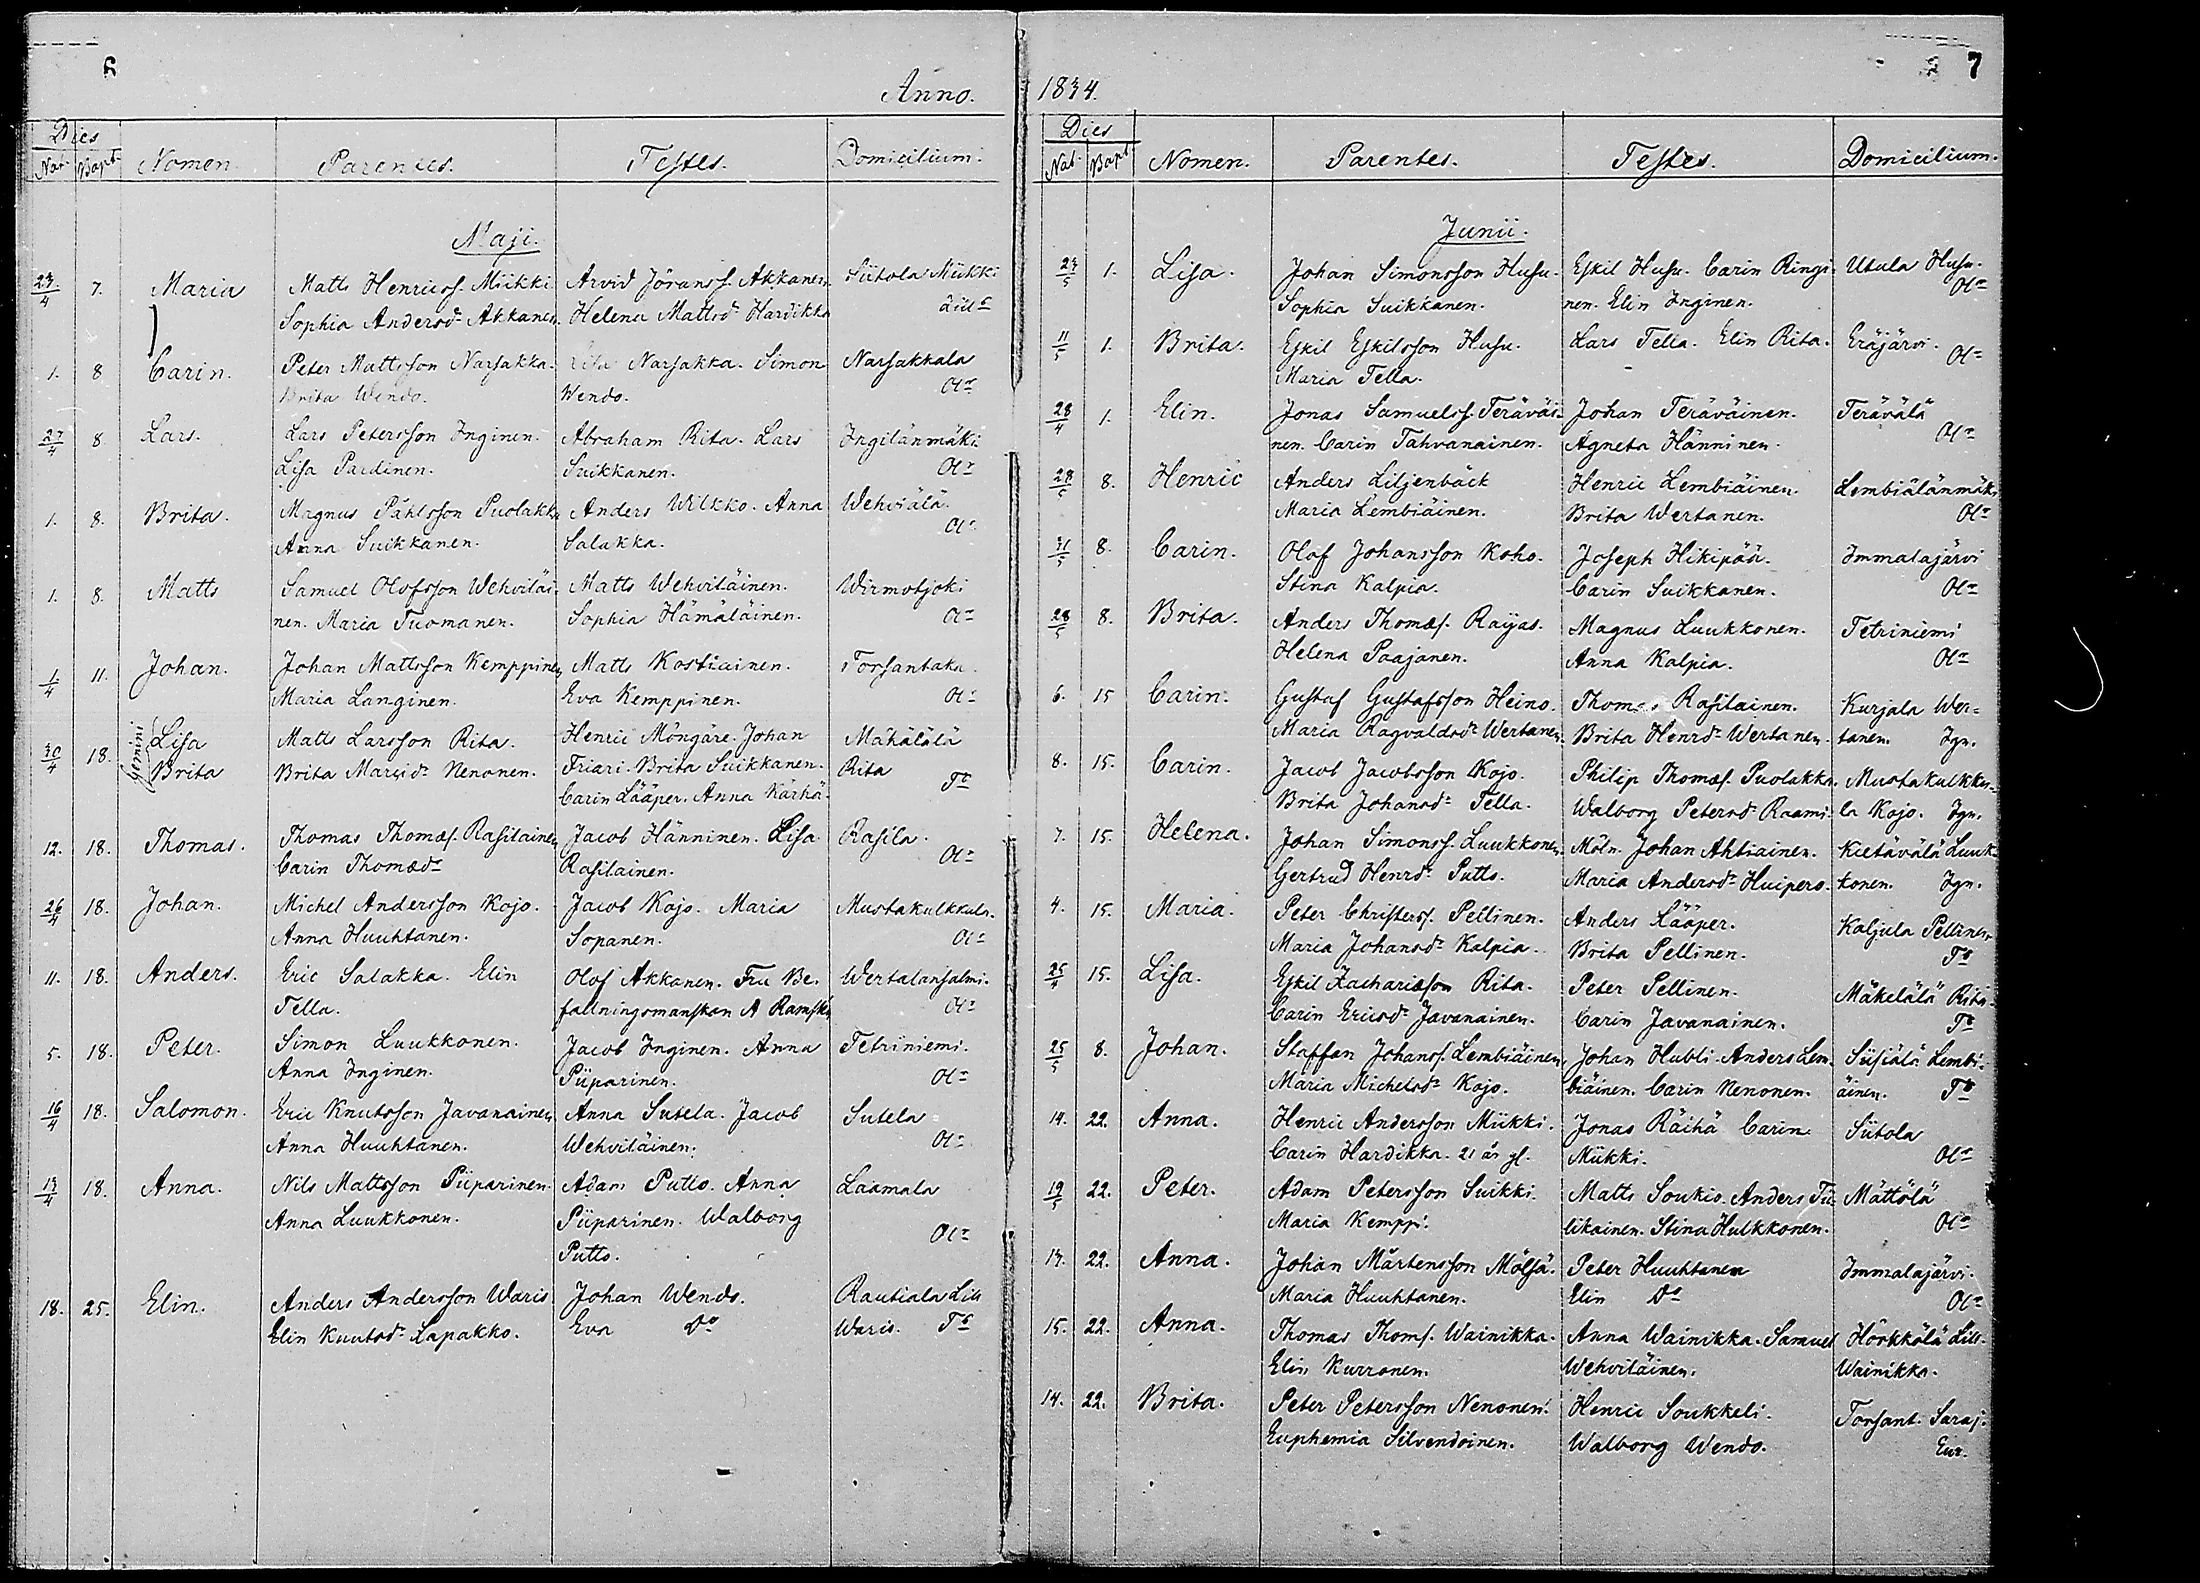 6
Anno.
Dies
Nat. Bapt. Nomen. Parentes. Testes. Domicilium.
Maji.
23/4 7. Maria Matts Henricss. Miikki Arvid Jöranss. Akkanen Siitola Miikki
Sophia Andersd. Akkanen. Helena Mattsd. Hardikka
1. 8 Carin. Peter Mattsson Narsakka. Narsakka. Simon Narsakkala
Brita Wendo. Wendo. Ol
27/4 8 Lars. Lars Petersson Inginen. Abraham Rita. Lars Ingilänmäki
Lisa Pardinen. Suikkanen. Ol
1. 8. Brita. Magnus Påhlsson Puolakka Anders Wilkko. Anna Wehviälä
Anna Suikkanen. Salakka. Ol
1. 8. Matts Samuel Olofsson Wehviläi- Matts Wehviläinen. Wirmotjoki
nen. Maria Tuomanen. Sophia Hämäläinen. Ol
1/4 11. Johan. Johan Mattsson Kemppinen, Matts Kostiainen. Torsantaka
Maria Langinen. Eva Kemppinen. Ol
30/4 18. gemini Lisa Matts Larsson Rita. Henric Möngäre. Johan Mähälälä
Brita Brita Nenonen. Friari. Brita Suikkanen. Rita T
Carin Lääper. Anna Kärhä.
12. 18. Thomas. Thomas Thomæs. Rasilainen, Jacob Hänninen. Lisa Rasila.
Carin Thomæd Rasilainen. Ol
26/4 18. Johan. Michel Andersson Kojo. Jacob Kojo. Maria Mustakulkkula.
Anna Huuhtanen. Sopanen. Ol
11. 18. Anders. Eric Salakka. Elin Olof Akkanen. Fru Be- Wertalansalmi.
Tella. fallningsmanskan A Ramsk Ol
5. 18. Peter. Simon Luukkonen. Jacob Inginen. Anna Tetriniemi.
Anna Inginen. Piiparinen. Ol
16/4 18. Salomon. Eric Knutsson Javanainen, Anna Sutela. Jacob Sutela
Anna Huuhtanen. Wehviläinen. Ol
13/4 18. Anna. Nils Mattsson Piiparinen. Adam Putto. Anna Laamala
Anna Luukkonen. Piiparinen. Walborg Ol
Putto.
18. 25. Elin. Anders Andersson Waris Johan Wendo. Rautiala Lill
Elin Knutsd. Lapakko. Eva Do Waris. T
7
1834.
Dies
Nat. Bapt. Nomen. Parentes. Testes. Domicilium.
Junii.
23/5 1. Lisa. Johan Simonsson Husu. Eskil Husu. Carin Ringi- Utula Husu.
Sophia Suikkanen. nen. Elin Inginen. Ol
11/5 1. Brita. Eskil Eskilsson Husu. Lars Tella. Elin Rita. Eräjärvi. Ol
Maria Tella.
28/4 1. Elin. Jonas Samuelss. Teräväi- Johan Teräväinen. Terävälä
nen. Carin Tahvanainen. Agneta Hänninen. Ol
28/5 8. Henric Anders Liljenbäck Henric Lembiäinen. Lembiälänmäki
Maria Lembiäinen. Brita Wertanen. Ol
31/5 8. Carin. Olof Johansson Koho. Joseph Hikipää. Immalajärvi
Stina Kalpia. Carin Suikkanen. Ol
28/5 8. Brita. Anders Thomæs. Raijas. Magnus Luukkonen. Tetriniemi
Helena Paajanen. Anna Kalpia. Ol
6. 15 Carin. Gustaf Gustafsson Heino. Thomas Rasilainen. Kurjala Wer-
Maria Ragvaldsd. Wertanen. Brita Henrd. Wertanen. tanen. Jgn.
8. 15. Carin. Jacob Jacobsson Kojo. Philip Thomæs. Puolakka. Mustakulkku-
Brita Johansd. Tella. Walborg Petersd. Raami. la Kojo. Jgn.
7. 15. Helena. Johan Simonss. Luukkonen. Möln. Johan Ahtiainen. Kietävälä Luuk-
Gertrud Henrd. Putto. Maria Andersd. Huipero. konen. Jgn.
4. 15. Maria. Peter Christerss. Pellinen. Anders Lääper. Kaljula Pellinen
Maria Johansd. Kalpia. Brita Pellinen. T
25/4 15. Lisa. Eskil Zachariæson Rita. Peter Pellinen. Mäkelälä Rita.
Carin Ericsd. Javanainen. Carin Javanainen. T
25/5 8. Johan. Staffan Johanss. Lembiäinen, Johan Hubli. Anders Lem- Siisiälä Lembi-
Maria Michelsd. Kojo. biäinen. Carin Nenonen. äinen. T
14. 22. Anna. Henric Andersson Miikki. Jonas Räihä Carin Siitola
Carin Hardikka. 21 år gl. Miikki. Ol
19/5 22. Peter. Adam Petersson Suikki. Matts Soukio. Anders Tii- Mättölä
Maria Kemppi. likainen. Stina Hulkkonen. Ol
13. 22. Anna. Johan Mårtensson Mölsä. Peter Huuhtanen Immalajärvi.
Maria Huuhtanen. Elin Do Ol
15. 22. Anna. Thomas Thoms. Wainikka. Anna Wainikka. Samuel Hörkkölä Lill
Elin Kurronen. Wehviläinen. Wainikka.
14. 22. Brita. Peter Petersson Nenonen. Henric Soukkeli. Torsant. Saraj.
Euphemia Silvendoinen. Walborg Wendo. Eur.